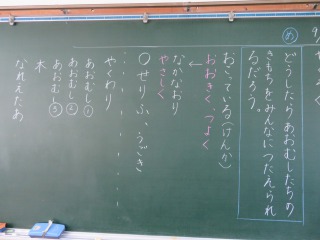 め
どうしたら あおむしたちの
きもちをみんなにつたえられ
るだろう。
おこっている(けんか)
おおきく、つよく
なかなおり
やさしく
○せりふ、うごき
やくわり
あおむし①
あおむし②
あおむし③
木
なれえたあ